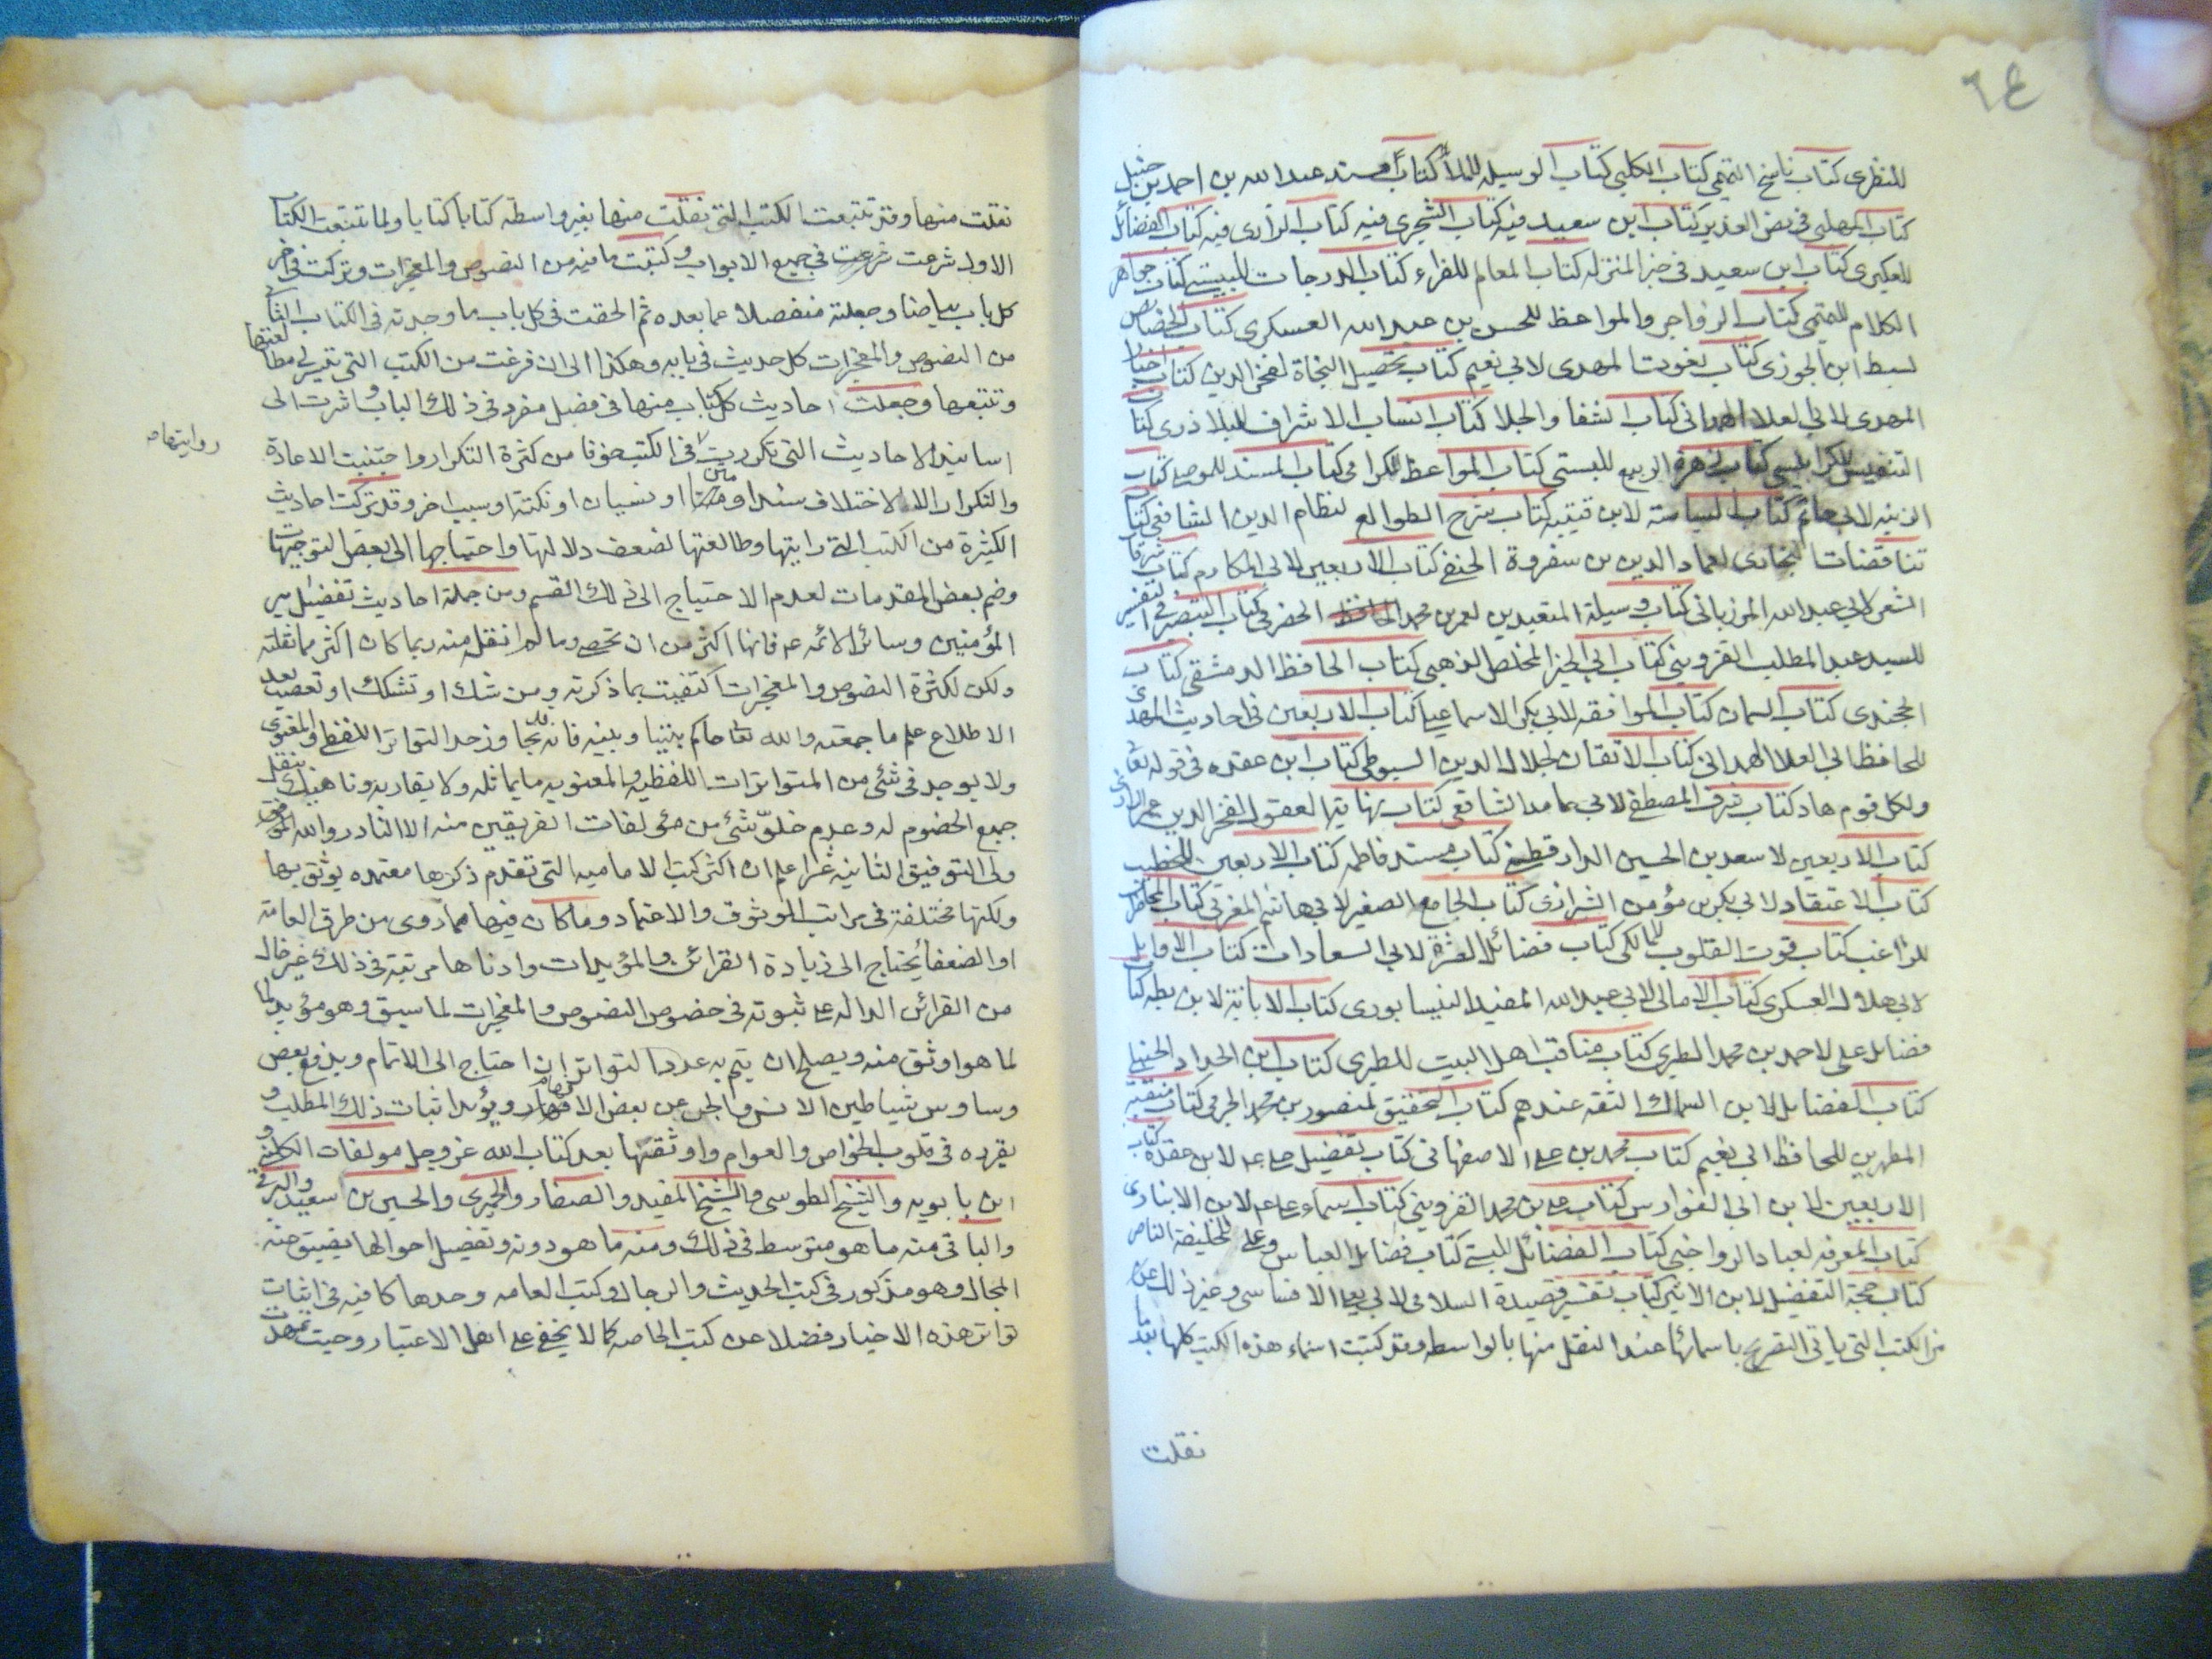 ٦٤
للنظري كتاب ناسخ التميمي كتاب الكلبي كتاب الوسيلة للملا كتاب مسند عبد الله بن احمد بن حنبل
كتاب المهلبي في نص الغدير كتاب ابن سعيد فيه كتاب الشجري فيه كتاب الرازي فيه كتاب الفضائل
للعكبري كتاب ابن سعيد في خبر المنزله كتاب المعالم للفراء كتاب الدرجات للبستي كتاب جواهر
الكلام للتميمي كتاب الزواجر والمواعظ للحسن بن عبد الله العسكري كتاب الخصائص
لسبط ابن الجوزي كتاب نعوت المهدي لابي نعيم كتاب تحصيل النجاة لفخر الدين كتاب اخبار
المهدي لابي العلا الهمداني كتاب الشفا والجلا كتاب انساب الاشراف للبلاذري كتاب
التنفيس للكرابيسي كتاب زهرة الربيع للبستي كتاب المواعظ للكرامي كتاب المسند للموصلي كتاب
الزينه لابي حاتم كتاب السياسة لابن قتيبه كتاب شرح الطوالع لنظام الدين الشافعي كتاب
تناقضات البخاري لعماد الدين بن سفروة الحنفي كتاب الاربعين لابي المكارم كتاب شرفات
الشعر لابي عبد الله المرزباني كتاب وسيلة المتعبدين لعمر بن محمد الحضرمي كتاب التبصر في التفسير
للسيد عبد المطلب القزويني كتاب ابي الخير المخلص الذهبي كتاب الحافظ الدمشقي كتاب
الخجندي كتاب السمان كتاب الموافقه لابي بكر الاسماعيلي كتاب الاربعين في احاديث المهدي
للحافظ ابي العلا الهمداني كتاب الاتقان لجلال الدين السيوطي كتاب ابن عقده في قوله تعالى
ولكل قوم هاد كتاب شرف المصطفى لابي حامد الشافعي كتاب نهاية العقول لفخر الدين عمر الرازي
كتاب الاربعين لاسعد بن الحسين الدارقطني كتاب مسند فاطمه كتاب الاربعين للخطيب
كتاب الاعتقاد لابي بكر بن مؤمن الشيرازي كتاب الجامع الصغير لابي هاشم المغربي كتاب المحاضرات
للراغب كتاب قوت القلوب للمالكي كتاب فضائل العشرة لابي السعادات كتاب الاوايل
لابي هلال العسكري كتاب الامالي لابي عبد الله المفيد النيسابوري كتاب الابانة لابن بطه كتاب
فضائل علي لاحمد بن محمد الطبري كتاب مناقب اهل البيت للطبري كتاب ابن الحداد الحنبلي
كتاب الفضائل لابن السماك الثقه عندهم كتاب التحقيق لمنصور بن محمد الحربي كتاب منقبة
المطهرين للحافظ ابي نعيم كتاب محمد بن علي الاصفهاني كتاب تفضيل علي ع لابن عقده كتاب
الاربعين لابن ابي الفوارس كتاب علي بن محمد القزويني كتاب اسماء علي ع لابن الانباري
كتاب المعرفه لعباد الرواجني كتاب الفضائل للبستي كتاب فضائل العباس وعلي للخليفة الناصر
كتاب حجة التفضيل لابن الاثير كتاب تفسير قصيدة السلامي لابي يعلى الافساسي وغير ذلك
من الكتب التي ياتي التصريح باسمائها عند النقل منها بالواسطه وقد كتبت اسماء هذه الكتب كلها بعد ما
نقلت
نقلت منها وقد تتبعت الكتب التي نقلت منها بغير واسطه كتابا كتابا ولما تتبعت الكتاب
الاول شرعت في جميع الابواب وكتبت ما فيه من النصوص والمعجزات وتركت في اخر
كل باب بياضا وجعلته منفصلا عما بعده ثم الحقت في كل باب ما وجدته في الكتاب الثاني
من النصوص والمعجزات كل حديث في بابه وهكذا الى ان فرغت من الكتب التي تيسر لي مطالعتها
وتتبعها وجعلت احاديث كل كتاب منها في فصل مفرد في ذلك الباب واشرت الى
روايتها
اسانيد الاحاديث التي تكررت في الكتب خوفا من كثرة التكرار واجتنبت الاعادة
والتكرار الا لاختلاف سند او متن او نسيان او نكتة او سبب اخر وقد تركت احاديث
الكثيرة من الكتب التي رايتها وطالعتها لضعف دلالتها واحتياجها الى بعض التوجيهات
وضم بعض المقدمات لعدم الاحتياج الى ذلك القسم ومن جملة احاديث تفضيل امير
المؤمنين وسائر الائمه ع فانها اكثر من ان تحصى وما لم انقل منه ربما كان اكثر مما نقلته
ولكن لكثرة النصوص والمعجزات اكتفيت بما ذكرته ومن شك او تشكك او تعصب بعد
الاطلاع على ما جمعته والله تعا حاكم بيننا وبينه فانه قد تجاوز حد التواتر اللفظي والمعنوي
ولا يوجد في شئ من المتواترات اللفظيه والمعنويه ما يماثله ولا يقاربه وناهيك بنقل
جميع الخصوم له وعدم خلوّ شئ من مؤلفات الفريقين منه الا النادر والله الموفق
ولي التوفيق الثانيه عشر اعلم ان اكثر كتب الاماميه التي تقدم ذكرها معتمده يوثق بها
ولكنها مختلفة في مراتب الوثوق والاعتماد وما كان فيها مما روي من طرق العامة
او الضعفا يحتاج الى زيادة القرائن والمؤيدات وادناها مرتبة في ذلك غير خال
من القرائن الداله على ثبوته في خصوص النصوص والمعجزات لما سبق وهو مؤيد لما
لما هو اوثق منه ويصلح ان يتم به عدد التواتر ان احتاج الى الاتمام ويدفع بعض
وساوس شياطين الانس والجن عن بعض الافهام ويؤيد اثبات ذلك المطلب و
يقرره في قلوب الخواص والعوام واوثقها بعد كتاب الله عز وجل مولفات الكليني و
ابن بابويه والشيخ الطوسي والشيخ المفيد والصفار والحميري والحسين بن سعيد والبرقي
والباقي منه ما هو متوسط في ذلك ومنه ما هو دونه وتفصيل احوالها يضيق عنه
المجال وهو مذكور في كتب الحديث والرجال وكتب العامه وحدها كافيه في اثبات
تواتر هذه الاخبار فضلا عن كتب الخاصه كما لا يخفى على اهل الاعتبار وحيث تمهدت